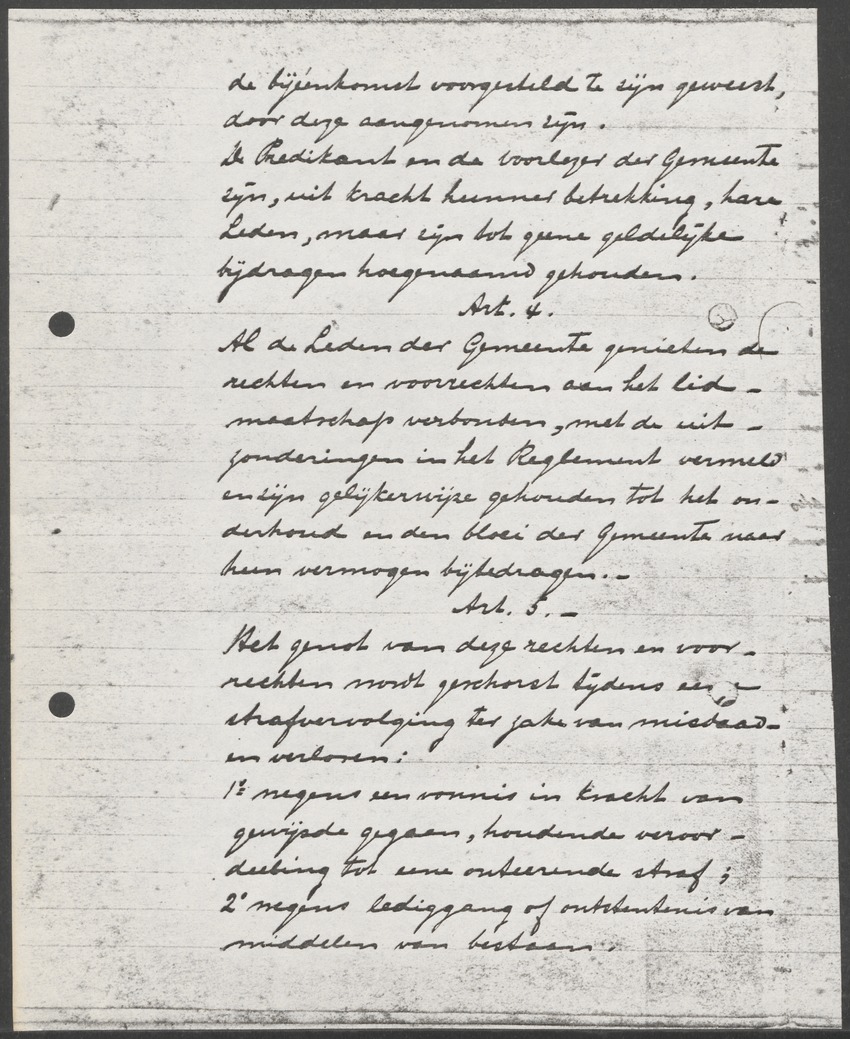 de bijéénkomst voorgesteld te zijn geweest,
door deze aangenomen zijn.
De Predikant en de voorlezer der Gemeente
zijn, uit kracht hunner betrekking, hare
Leden, maar zijn tot geene geldelijke
bijdragen hoegenaamd gehouden.
Art. 4.
Al de Leden der Gemeente genieten de
rechten en voorrechten aan het lid-
maatschap verbonden, met de uit-
zonderingen in het Reglement vermeld
en zijn gelijkerwijze gehouden tot het on-
derhoud en den bloei der Gemeente naar
hun vermogen bijtedragen.-
Art. 5.-
Het genot van deze rechten en voor-
rechten wordt geschorst tijdens een
strafvervolging ter zake van misdaad-
en verloren:
1º wegens een vonnis in kracht van
gewijsde gegaan, houdende veroor-
deeling tot eene onteerende straf;
2º wegens lediggang of ontstentenis van
middelen van bestaan.